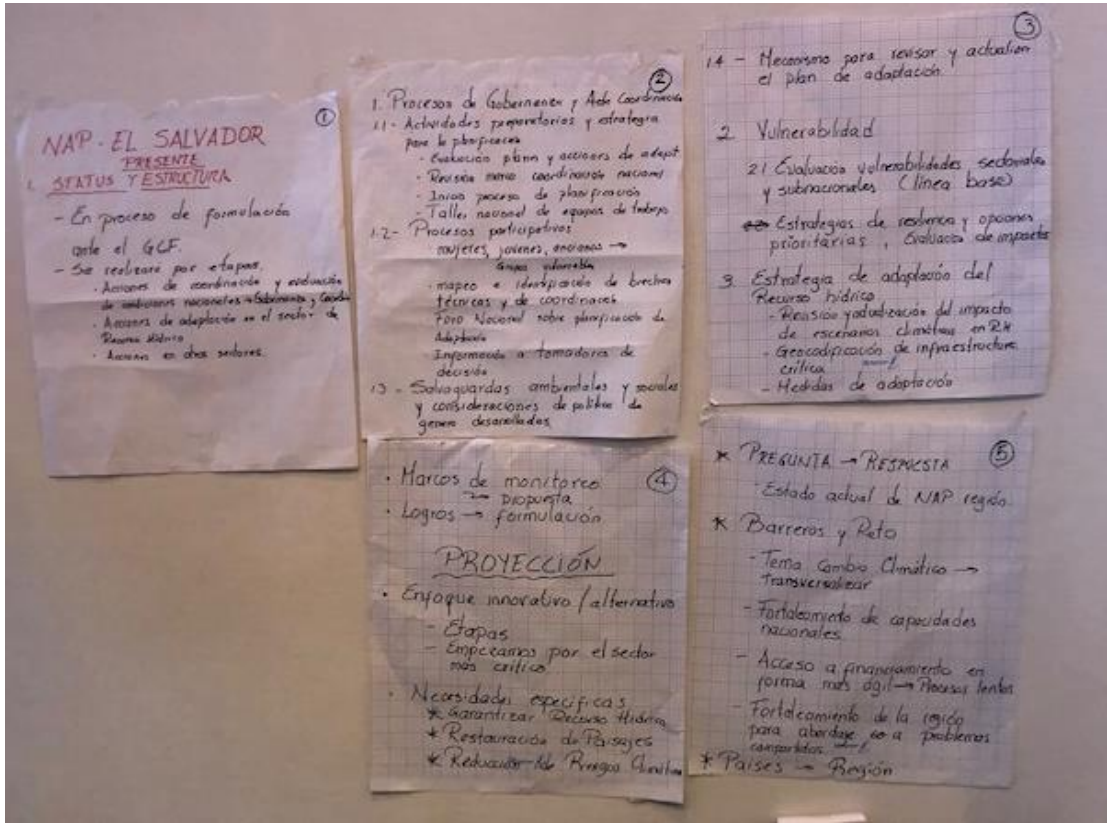 ①
NAP - EL SALVADOR
PRESENTE
1. STATUS Y ESTRUCTURA
- En proceso de formulación
ante el GCF.
- Se realizara por etapas.
· Acciones de coordinación y evaluación
de condiciones nacionales → Gobernanza y
· Acciones de adaptación en el sector de
Recurso Hídrico
· Acciones en otros sectores.
②
1. Procesos de Gobernanza y Coordinación
1.1 - Actividades preparatorias y estrategia
para la planificación
- Evaluación planes y acciones de adapt.
- Revisión marco coordinación nacional
- Inicio proceso de planificación
- Taller nacional de equipos de trabajo
1.2 - Procesos participativos
mujeres, jóvenes, ancianos →
Grupos vulnerables
- mapeo e identificación de brechas
técnicas y de coordinación
Foro Nacional sobre planificación de
Adaptación
Información a tomadores de
decisión
1.3 - Salvaguardas ambientales y sociales
y consideraciones de política de
genero desarrolladas.
③
1.4 - Mecanismo para revisar y actualizar
el plan de adaptación
2 Vulnerabilidad
2.1 Evaluación vulnerabilidades sectoriales
y subnacionales (línea base)
Estrategias de resiliencia y opciones
prioritarias, Evaluación de impactos
3. Estrategia de adaptación del
Recurso hídrico
- Revisión y actualización del impacto
de escenarios climáticos en RH
- Geocodificación de infraestructura
crítica
- Medidas de adaptación
④
· Marcos de monitoreo
→ propuesta
· Logros → formulación
PROYECCIÓN
· Enfoque innovativo / alternativo
- Etapas
- Empezamos por el sector
más crítico
· Necesidades específicas
* Garantizar Recurso Hídrico
* Restauración de Paisajes
* Reducción de Riesgos Climáticos
⑤
* PREGUNTA → RESPUESTA
- Estado actual de NAP región.
* Barreras y Reto
- Tema Cambio Climático →
Transversalizar
- Fortalecimiento de capacidades
nacionales.
- Acceso a financiamiento en
forma más ágil → Procesos lentos
- Fortalecimiento de la región
para abordaje a problemas
compartidos
* Países → Región